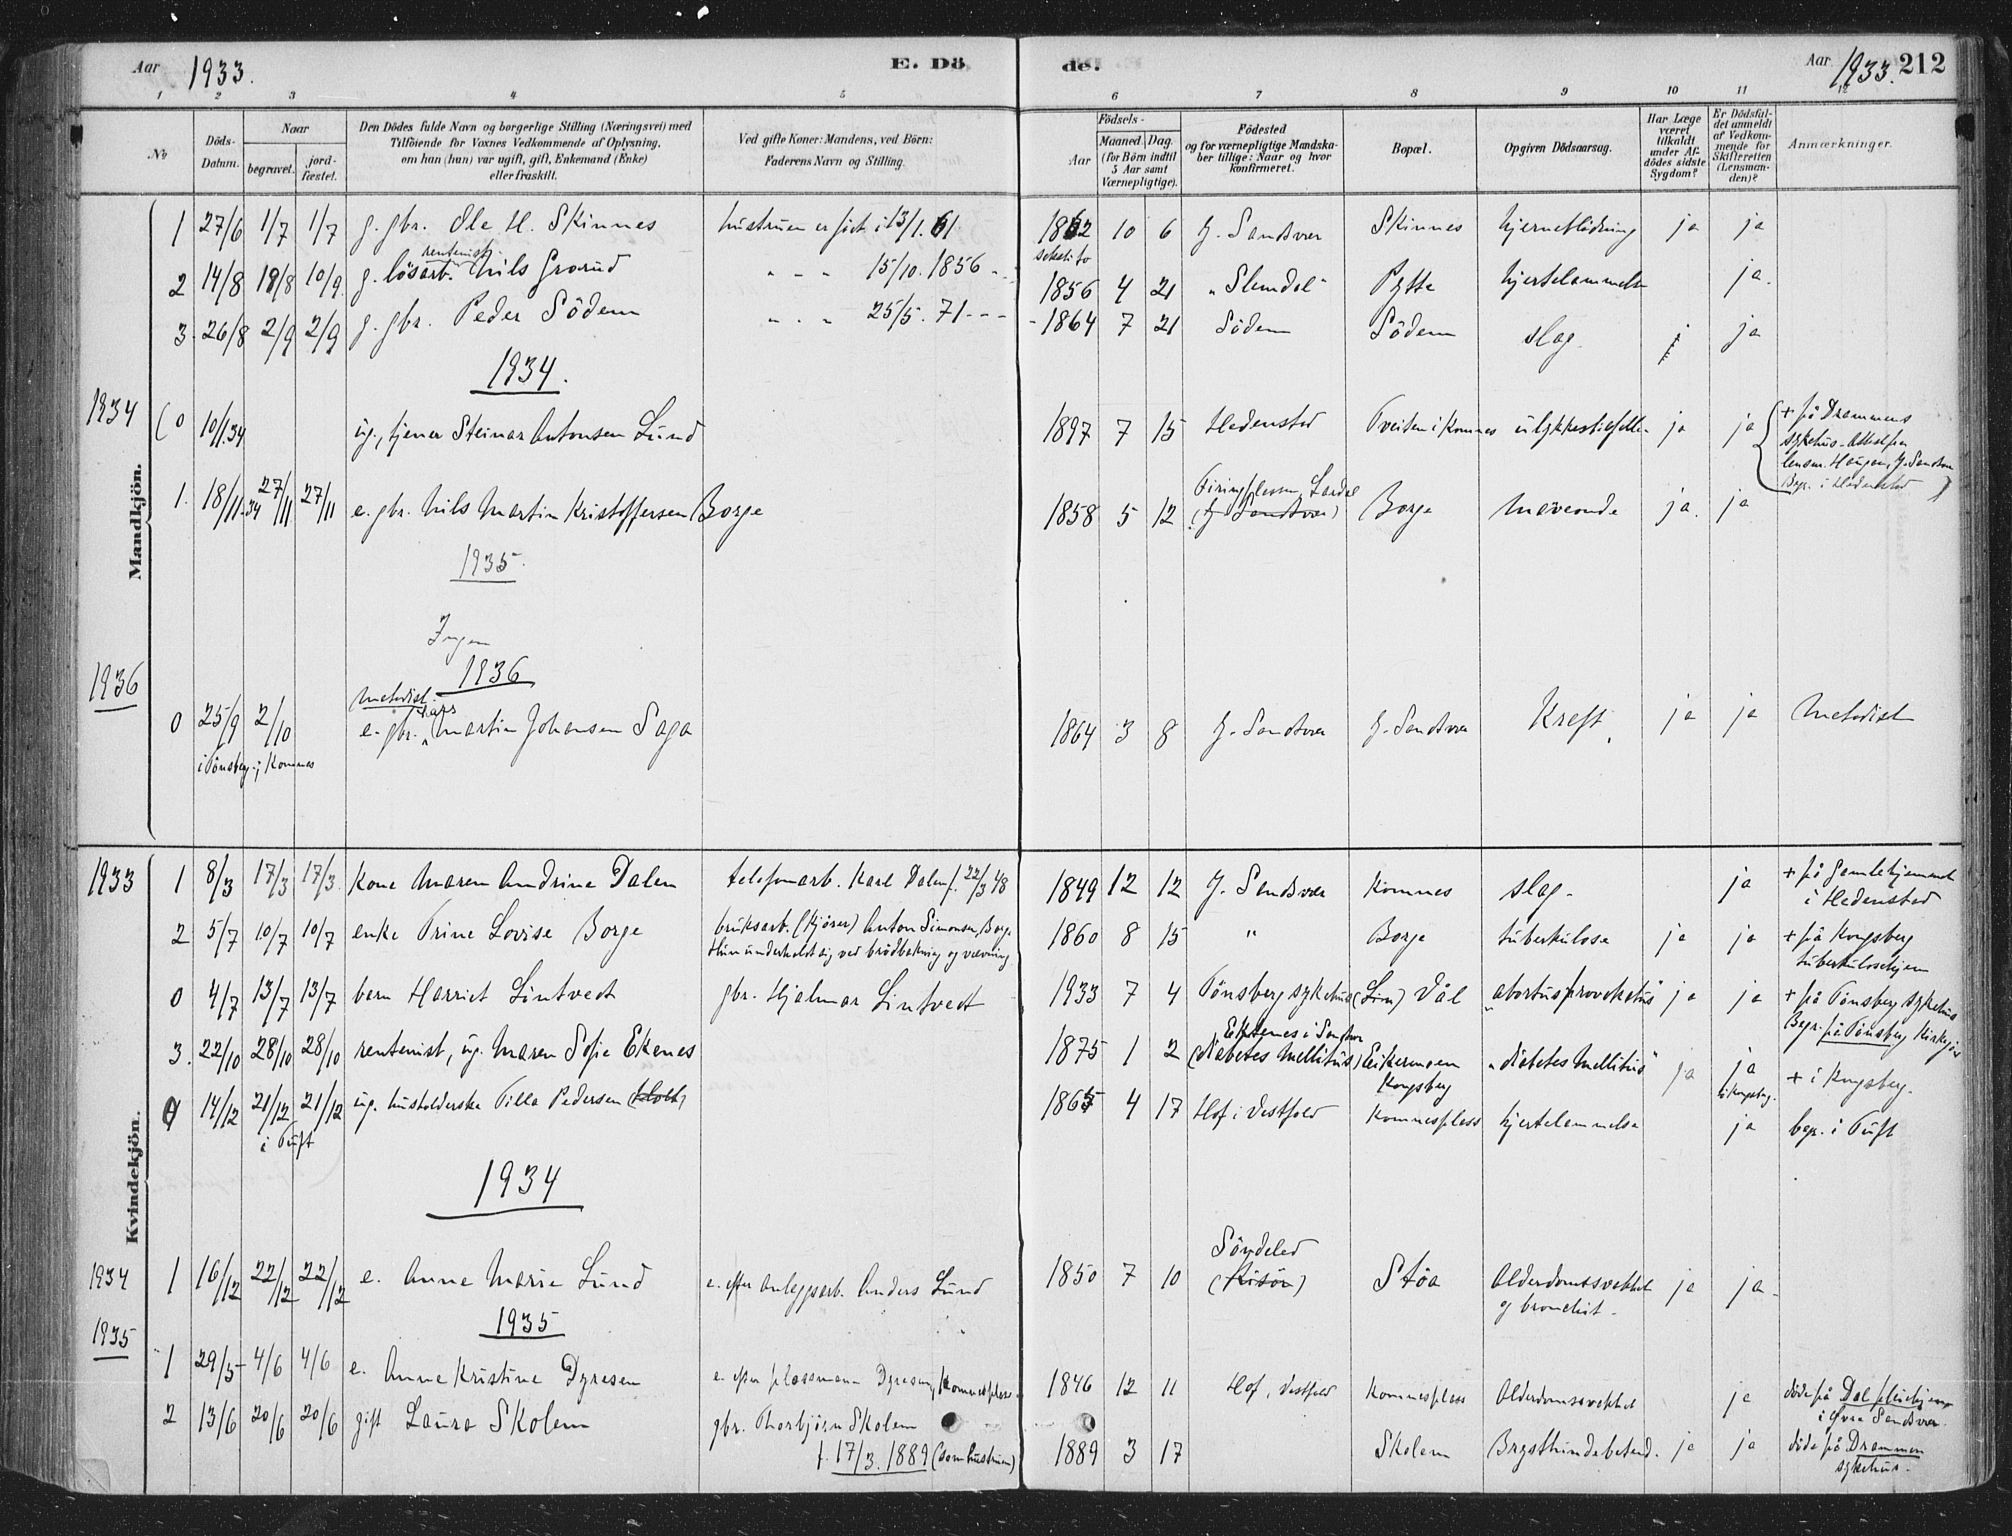 Aar 1933. E. Dö de. Aar 1933. 212
1 2 3 4 5 6 7 8 9 10 11 12
No Döds-Datum. Naar begravet. jord-fæstet. Den Dödes fulde Navn og borgerlige Stilling (Næringsvei) med Tilföiende for Voxnes Vedkommende af Oplysning, om han (hun) var ugift, gift, Enkemand (Enke) eller fraskilt. Ved gifte Koner: Mandens, ved Börn: Faderens Navn og Stilling. Födsels- Aar Maaned. Dag. (for Börn indtil 5 Aar samt Værnepligtige). Födested og for værnepligtige Mandska-ber tillige: Naar og hvor konfirmeret. Bopæl. Opgiven Dödsaarsag. Har Læge været tilkaldt under Af-dödes sidste Sygdom? Er Dödsfal-det anmeldt af Vedkom-mende for Skifteretten (Lensman-den)? Anmærkninger.
Mandkjön.
1 27/6 1/7 1/7 g. gbr. Ole H. Skinnes hustruen er født i 13/1. 61 1862 10 6 Y. Sandsvær Skinnes hjerneblødning ja ja
seksti to
2 14/8 18/8 10/9 g. løsarb. rentenist Nils Grorud " " " 15/10. 1856 1856 4 21 "Slemdal" Pytte hjertelammelse ja.
3. 26/8 2/9 2/9 g. gbr. Peder Södem " " " 25/5. 71 - - - 1864 7 21 Södem Södem slag. j ja
1934.
1934 (0 10/1.34 ug., tjener Steinar Antonsen Lund 1897 7 15 Hedensted Tveiten i Komnes ulykkestilfelle ja ja + på Drammens
sykehus - Attest fra
lensm. Haugen, Y. Sandsv.
Begr. i Hedensted
1. 18/11.34 27/11 27/11 e. gbr. Nils Martin Kristoffersen Borge 1858 5 12 Lardal (Y. Sandsvær) Borge maveonde ja. ja
1935.
Ingen
1936
1936 metodist.
0 25/9 2/10 e. gbr. Lars Martin Johansen Saga 1864 3 8 Y. Sandsvær Y. Sandsvær Kreft. ja ja Metodist
i Tönsberg i Komnes
Kvindekjön.
1933 1 8/3 17/3 17/3. Kone Maren Andrine Dalen telefonarb. Karl Dalen f. 22/3 48 1849 12 12 Y. Sandsvær Komnes slag. ja + på Gamlehjemmet
i Hedensted
2 5/7 10/7 10/7 enke Trine Lovise Borge bruksarb. (kjører) Anton Simonsen, Borge 1860 8 15 " Borge tuberkulose ja ja + på Kongsberg
Hun underholdt sig ved brödbakning og vævning. tuberkulosehjem
0 4/7 13/7 13/7 barn Harriet Lintvedt gbr. Hjalmar Lintvedt 1933 7 4 Tönsberg sykehus (Lin) Vål "abortus provokatus" ja ja + på Tönsberg sykehus
Begr. på Tönsberg Kirkegård
3. 22/10 28/10 28/10 rentenist, ug. Maren Sofie Ekenes 1875 1 2 Ekenes i Sandsvær (diabetes mellitus) Eikerveien "diabetes mellitus" ja ja + i Kongsberg.
Kongsberg
4 14/12 21/12 21/12 ug. husholderske Tilla Pedersen (Holt) 1865 4 17 Hof i Vestfold Komnesplass hjertelammelse ja begr. i Tuft
i Tuft
1934
1934 1 16/12 22/12 22/12 e. Anne Marie Lund e. efter anleggsarb. Anders Lund 1850 7 10 Söndeled (Risör) Stöa Alderdomssvakhet ja ja
og bronchit.
1935
1935 1 29/5 4/6 4/6 e. Anne Kristine Dyresen e. efter plassmann Dyresen, Komnesplass 1846 12 11 Hof, Vestfold Komnesplass Alderdomssvakhet ja döde på Dal pleiehjem
i Øvre Sandsvær.
2 13/6 20/6 20/6 gift Laura Skolem gbr. Thorbjörn Skolem
f. 17/3. 1889 (som hustruen) 1889 3 17 Skolem Brysthindebetend. ja ja döde på Drammen
sykehus.